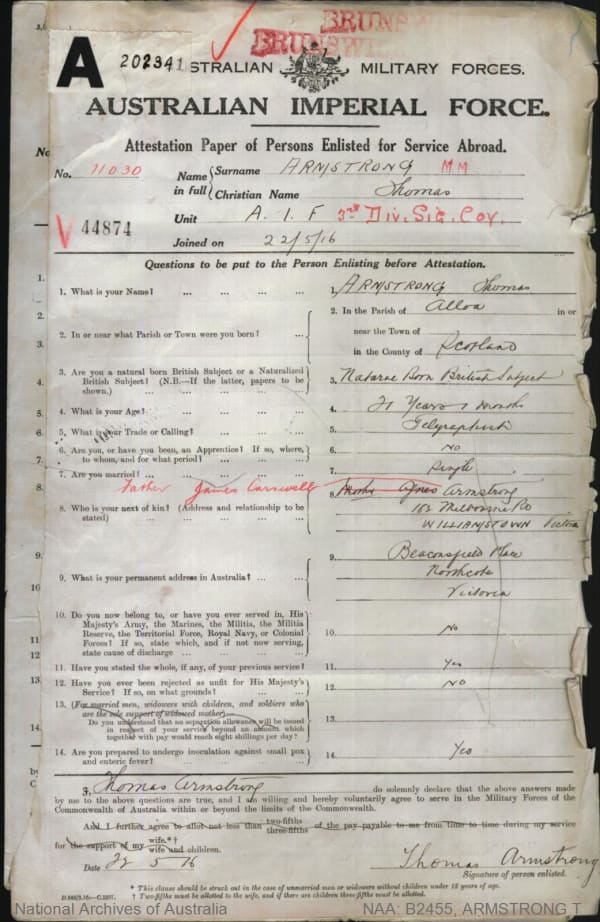 BRUNSWICK
BRUNSWICK
A 202341
AUSTRALIAN MILITARY FORCES.
AUSTRALIAN IMPERIAL FORCE.
Attestation Paper of Persons Enlisted for Service Abroad.
No. 11030
Name in full { Surname ARMSTRONG MM
Christian Name Thomas
44874
Unit A.I.F 3rd Div. Sig. Coy.
Joined on 22/5/16
Questions to be put to the Person Enlisting before Attestation.
1. What is your Name? ... ... ... ... 1. ARMSTRONG Thomas
2. In or near what Parish or Town were you born? ... 2. In the Parish of Alloa in or
near the Town of
in the County of Scotland
3. Are you a natural born British Subject or a Naturalized
British Subject? (N.B.—If the latter, papers to be
shown.) ... ... ... ... 3. Natural Born British Subject
4. What is your Age? ... ... ... ... 4. 21 Years 1 months
5. What is your Trade or Calling? ... ... ... 5. Telegraphist
6. Are you, or have you been, an Apprentice? If so, where,
to whom, and for what period? ... ... ... 6. No
7. Are you married? ... ... ... ... 7. Single
Father James Carswell
8. Who is your next of kin? (Address and relationship to be
stated) ... ... ... ... 8. Mother Agnes Armstrong
Melbourne Rd
WILLIAMSTOWN Victoria
9. What is your permanent address in Australia? ... ... 9. Beaconsfield Place
Northcote
Victoria
10. Do you now belong to, or have you ever served in, His
Majesty's Army, the Marines, the Militia, the Militia
Reserve, the Territorial Force, Royal Navy, or Colonial
Forces? If so, state which, and if not now serving,
state cause of discharge ... ... ... ... 10. No
11. Have you stated the whole, if any, of your previous service? 11. Yes
12. Have you ever been rejected as unfit for His Majesty's
Service? If so, on what grounds? ... ... 12. No
13. (For married men, widowers with children, and soldiers who
are the sole support of widowed mother)—
Do you understand that no separation allowance will be issued
in respect of your service beyond an amount which
together with pay would reach eight shillings per day? 13.
14. Are you prepared to undergo inoculation against small pox
and enteric fever? ... ... ... ... 14. Yes
I, Thomas Armstrong do solemnly declare that the above answers made
by me to the above questions are true, and I am willing and hereby voluntarily agree to serve in the Military Forces of the
Commonwealth of Australia within or beyond the limits of the Commonwealth.
And I further agree to allot not less than two-fifths three-fifths of the pay payable to me from time to time during my service
for the support of my wife.*† wife and children.
Date 22 5 16
Thomas Armstrong
Signature of person enlisted.
* This clause should be struck out in the case of unmarried men or widowers without children under 18 years of age.
† Two-fifths must be allotted to the wife, and if there are children three-fifths must be allotted.
National Archives of Australia NAA: B2455, ARMSTRONG T